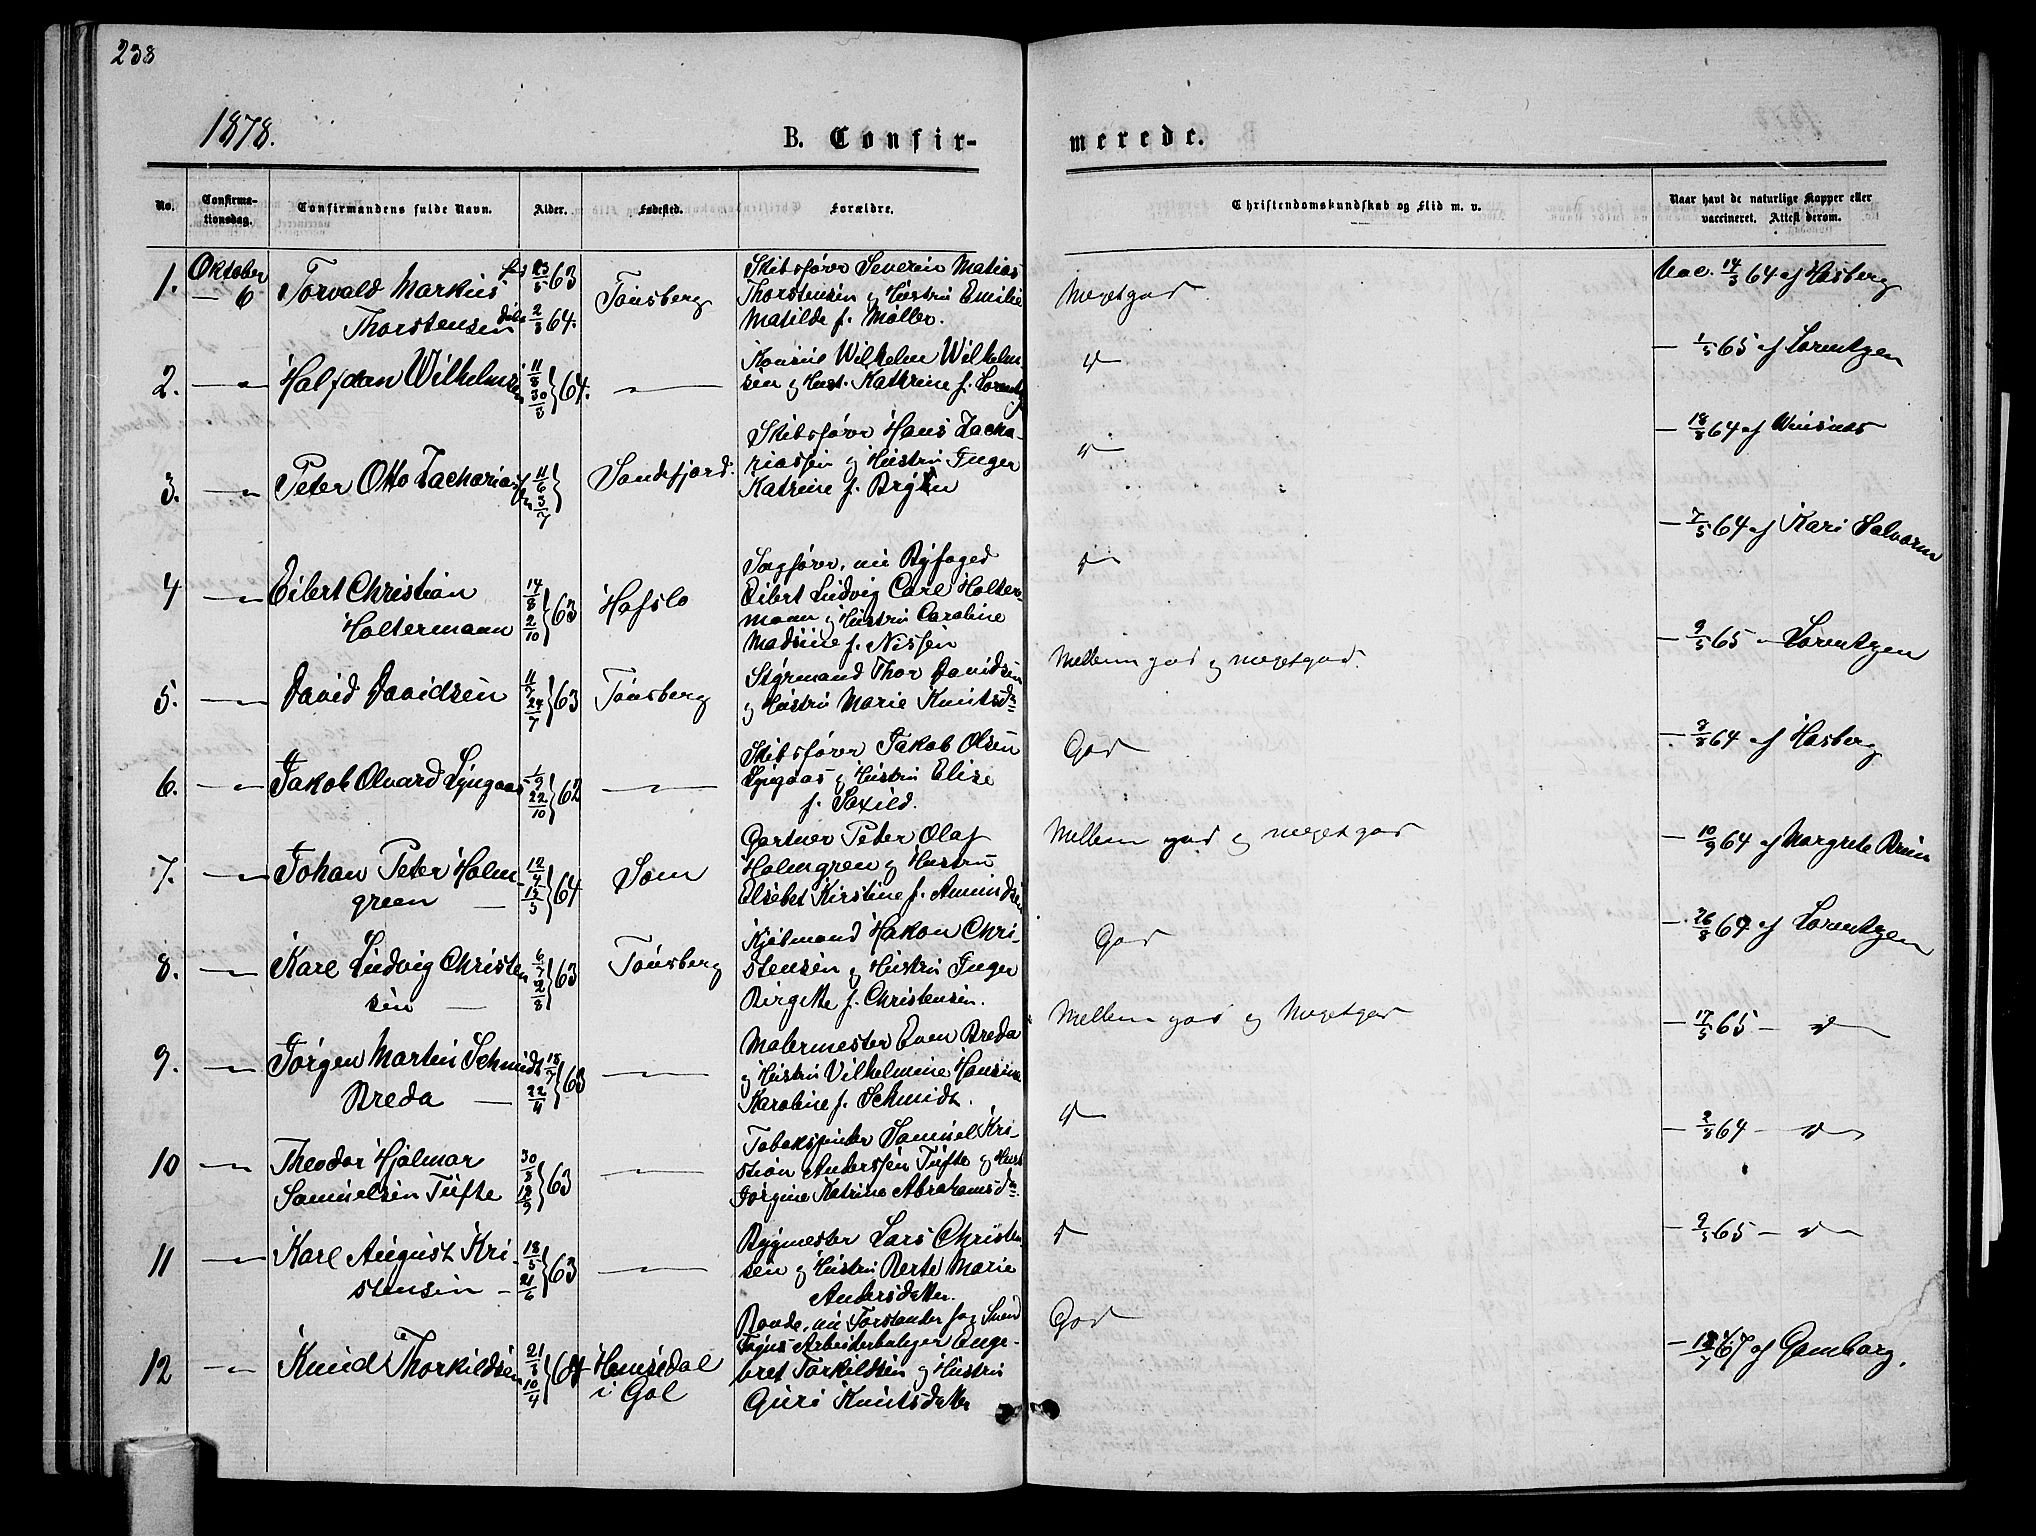 238
1878.
B. Confir-
merede.
No.
Confirma-
tionsdag.
Confirmandens fulde Navn.
Alder.
Fødested.
Forældre.
Christendomskundskab og Flid m. v.
Naar havt de naturlige Kopper eller
vaccineret. Attest derom.
1.
Oktober
— 6
Torvald Markus
Thorstensen
63
2/8 64.
Tønsberg
Skibsfører Severin Matias
Thorstensen og Hustru Emilie
Matilde f. Møller.
Megetgod
Vac. 14/3 64 af Hasberg
2.
Halfdan Wilhelmsen
11/8 30/8 } 64.
Wilhelm Wilhelm-
sen og Hust. Kathrine f. Lorentz
— 1/5 65 af Lorentzen
3.
Peter Otto Zachariassen
11/6 3/7 }
Sandefjord.
Skibsfører Hans Zacha-
riassen og Hustru Inger
Katrine f. Bryhn
— 18/8 64 af
4
Eilert Christian
Holtermann
14/8 2/10 } 63
Hafslo
Sagfører, nu Byfoged
Eilert Ludvig Carl Holter-
mann og Hustru Caroline
Madsine f. Nissen
— 7/5 64 af Kari
5.
David Davidsen
11/7 24/7 } 63
Tønsberg
Styrmand Thor Davidsen
og Hustru Marie Knutsd.
Mellem god og megetgod.
— 9/5 65 — Lorentzen
6.
Jakob Olvard Lyngaas
1/9 22/10 } 62
Skibsfører Jakob Olsen
Lyngaas og Hustru Elise
f. Saxild.
God
3/8 64 af Hasberg
7.
Johan Peter Holm-
green
12/4 15/5 } 64
Som
Gartner Peter Olaf
Holmgren og Hustru
Elsebet Kirstine f. Amundsen
Mellem god og megetgod
— 10/9 64 af Margrete Bruun
8.
Karl Ludvig Christen
sen
6/7 2/8 } 63
Tønsberg
Kjøbmand Hakon Chri-
stensen og Hustru Inger
Birgitte f. Christensen.
God
— 26/8 64 af Lorentzen
9.
Jørgen Martin Schmidt
Breda
18/7 22/4 } 63
Malermester Even Breda
og Hustru Vilhelmine Hansine
Karoline f. Schmidt.
Mellem god og Megetgod
— 17/5 65 —
10
Theodor Hjalmar
Samuelsen Tufte
30/8 18/9 } 63
Tobakspinder Samuel Kri-
stian Anderssen Tufte og Hust
Jørgine Katrine Abrahamsd.
— 3/8 64 —
11
Karl August Kri-
stensen
18/5 21/6 } 63
Bygmester Lars Christen
sen og Hustru Berte Marie
Andersdatter.
— 9/5 65 —
12
Knud Thorkildsen
21/3 10/4 } 64
Hemsedal
i Gol
Bonde, nu Forstander for Svend
Foyns Arbeiderboliger Enge-
bret Torkildsen og Hustru
Guri Knutsdatter
God
67 af Gamborg.